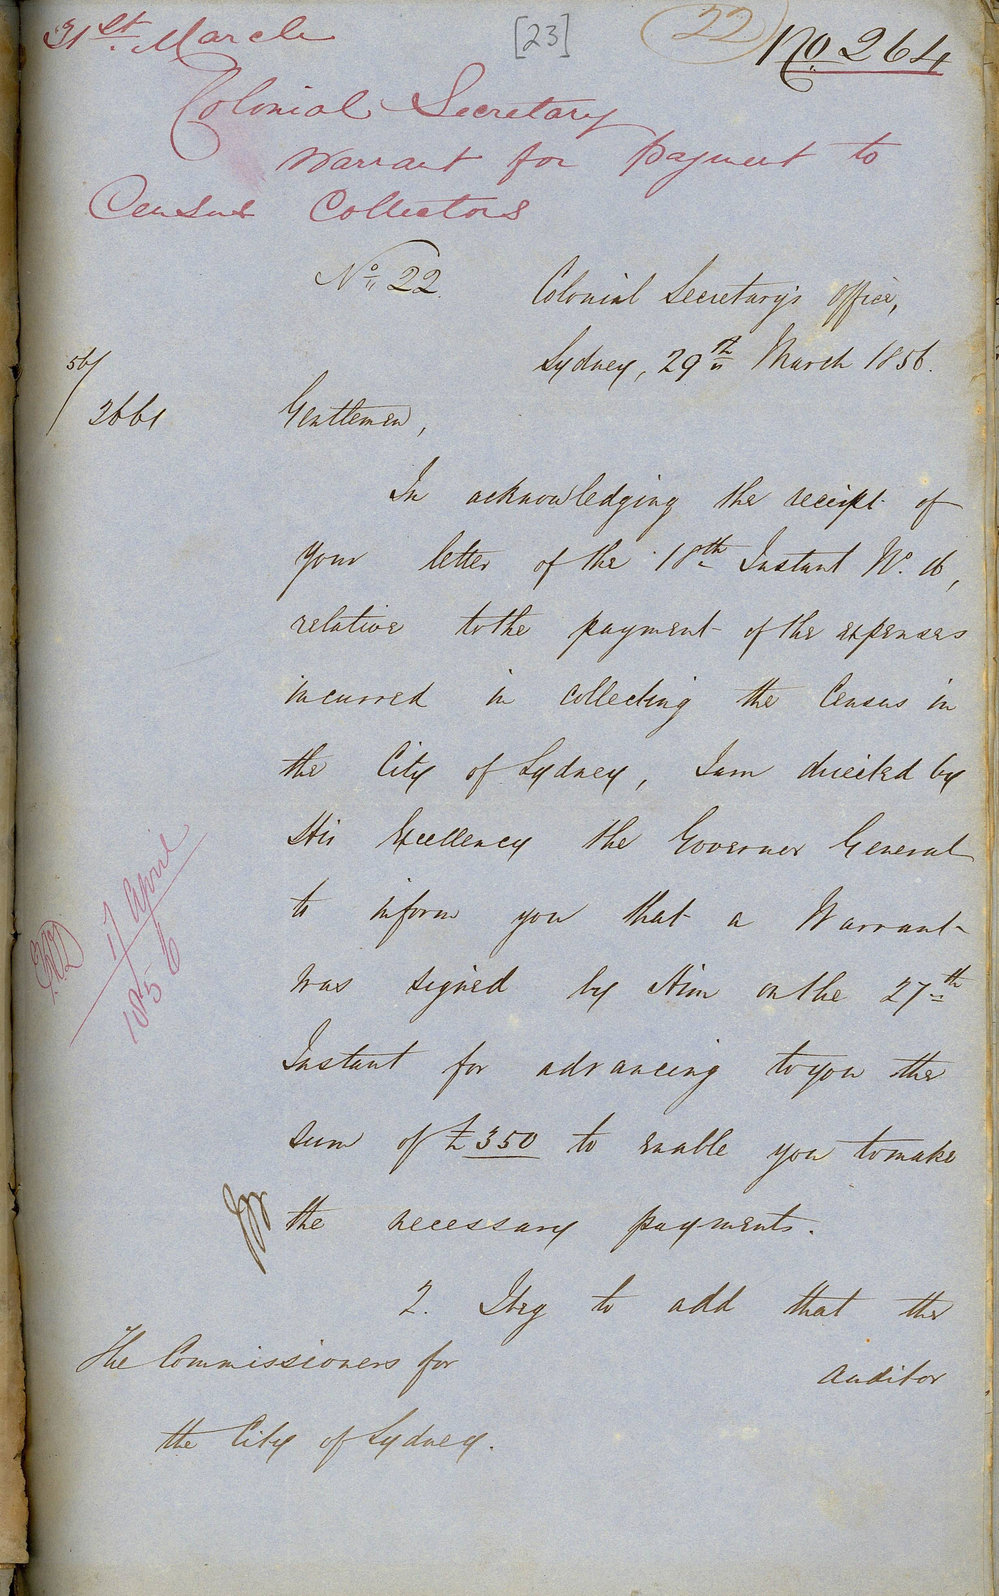 31st March
[23]
22
No 264
Colonial Secretary
Warrant for payment to
Census Collectors
No 22.
Colonial Secretary's Office,
Sydney, 29th March 1856.
56/
2661
Gentlemen,
In acknowledging the receipt of
your letter of the 18th Instant No. 16,
relative to the payment of the expenses
incurred in collecting the Census in
the City of Sydney, I am directed by
His Excellency the Governor General
to inform you that a Warrant
was signed by Him on the 27th
Instant for advancing to you the
sum of £350 to enable you to make
the necessary payments.
2. I beg to add that the
Auditor
The Commissioners for
the City of Sydney.
17 April
1856